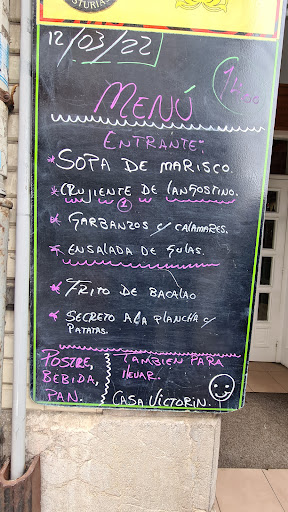 ASTURIAS
12/03/22
14,00
MENÚ
ENTRANTE:
*SOPA DE MARISCO.
*CRUJIENTE DE LANGOSTINO.
①
*GARBANZOS c/ CALAMARES.
*ENSALADA DE GULAS.
*FRITO DE BACALAO
*SECRETO A LA PLANCHA c/
PATATAS.
POSTRE,
BEBIDA,
PAN.
TAMBIEN PARA
llEVAR.
CASA VICTORIN.